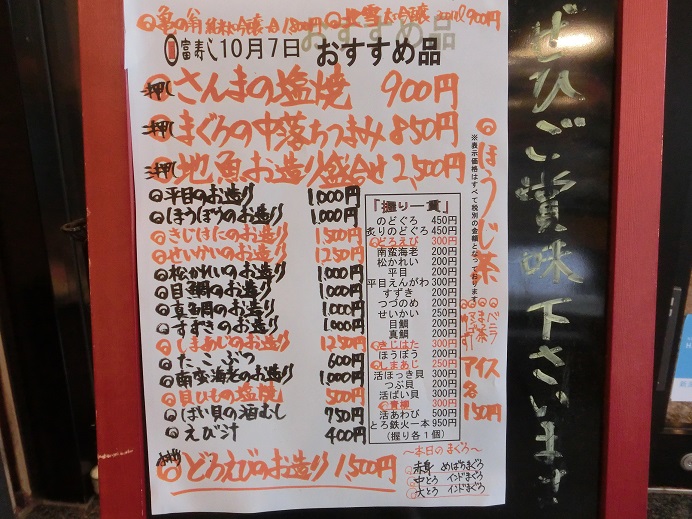 亀の翁 純米吟醸 一合 1,800円
北雪 大吟醸 200ml 900円
富寿し10月7日 おすすめ品
押し さんまの塩焼 900円
押し まぐろの中落ちつまみ 850円
押し 地魚お造り盛合せ 2,500円
平目のお造り 1,000円
ほうぼうのお造り 1,000円
きじはたのお造り 1,500円
せいかいのお造り 1,250円
松かれいのお造り 1,000円
目鯛のお造り 1,000円
真鯛のお造り 1,000円
すずきのお造り 1,000円
しまあじのお造り 1,250円
たこぶつ 600円
南蛮海老のお造り 1,000円
貝ひもの塩焼 500円
ばい貝の酒むし 750円
えび汁 400円
どろえびのお造り 1,500円
「握り一貫」
のどぐろ 450円
炙りのどぐろ 450円
どろえび 300円
南蛮海老 200円
松かれい 200円
平目 200円
平目えんがわ 300円
すずき 200円
つづのめ 200円
せいかい 250円
目鯛 200円
真鯛 200円
きじはた 300円
ほうぼう 200円
しまあじ 250円
活ほっき貝 300円
つぶ貝 200円
活ばい貝 300円
貴柳 300円
活あわび 500円
とろ鉄火一本 950円
(握り各1個)
～本日のまぐろ～
赤身 めばちまぐろ
中とろ インドまぐろ
大とろ インドまぐろ
※表示価格はすべて税別の金額となっております。
ほうじ茶
バニラ
アイス各150円
ぜひご賞味下さいませ